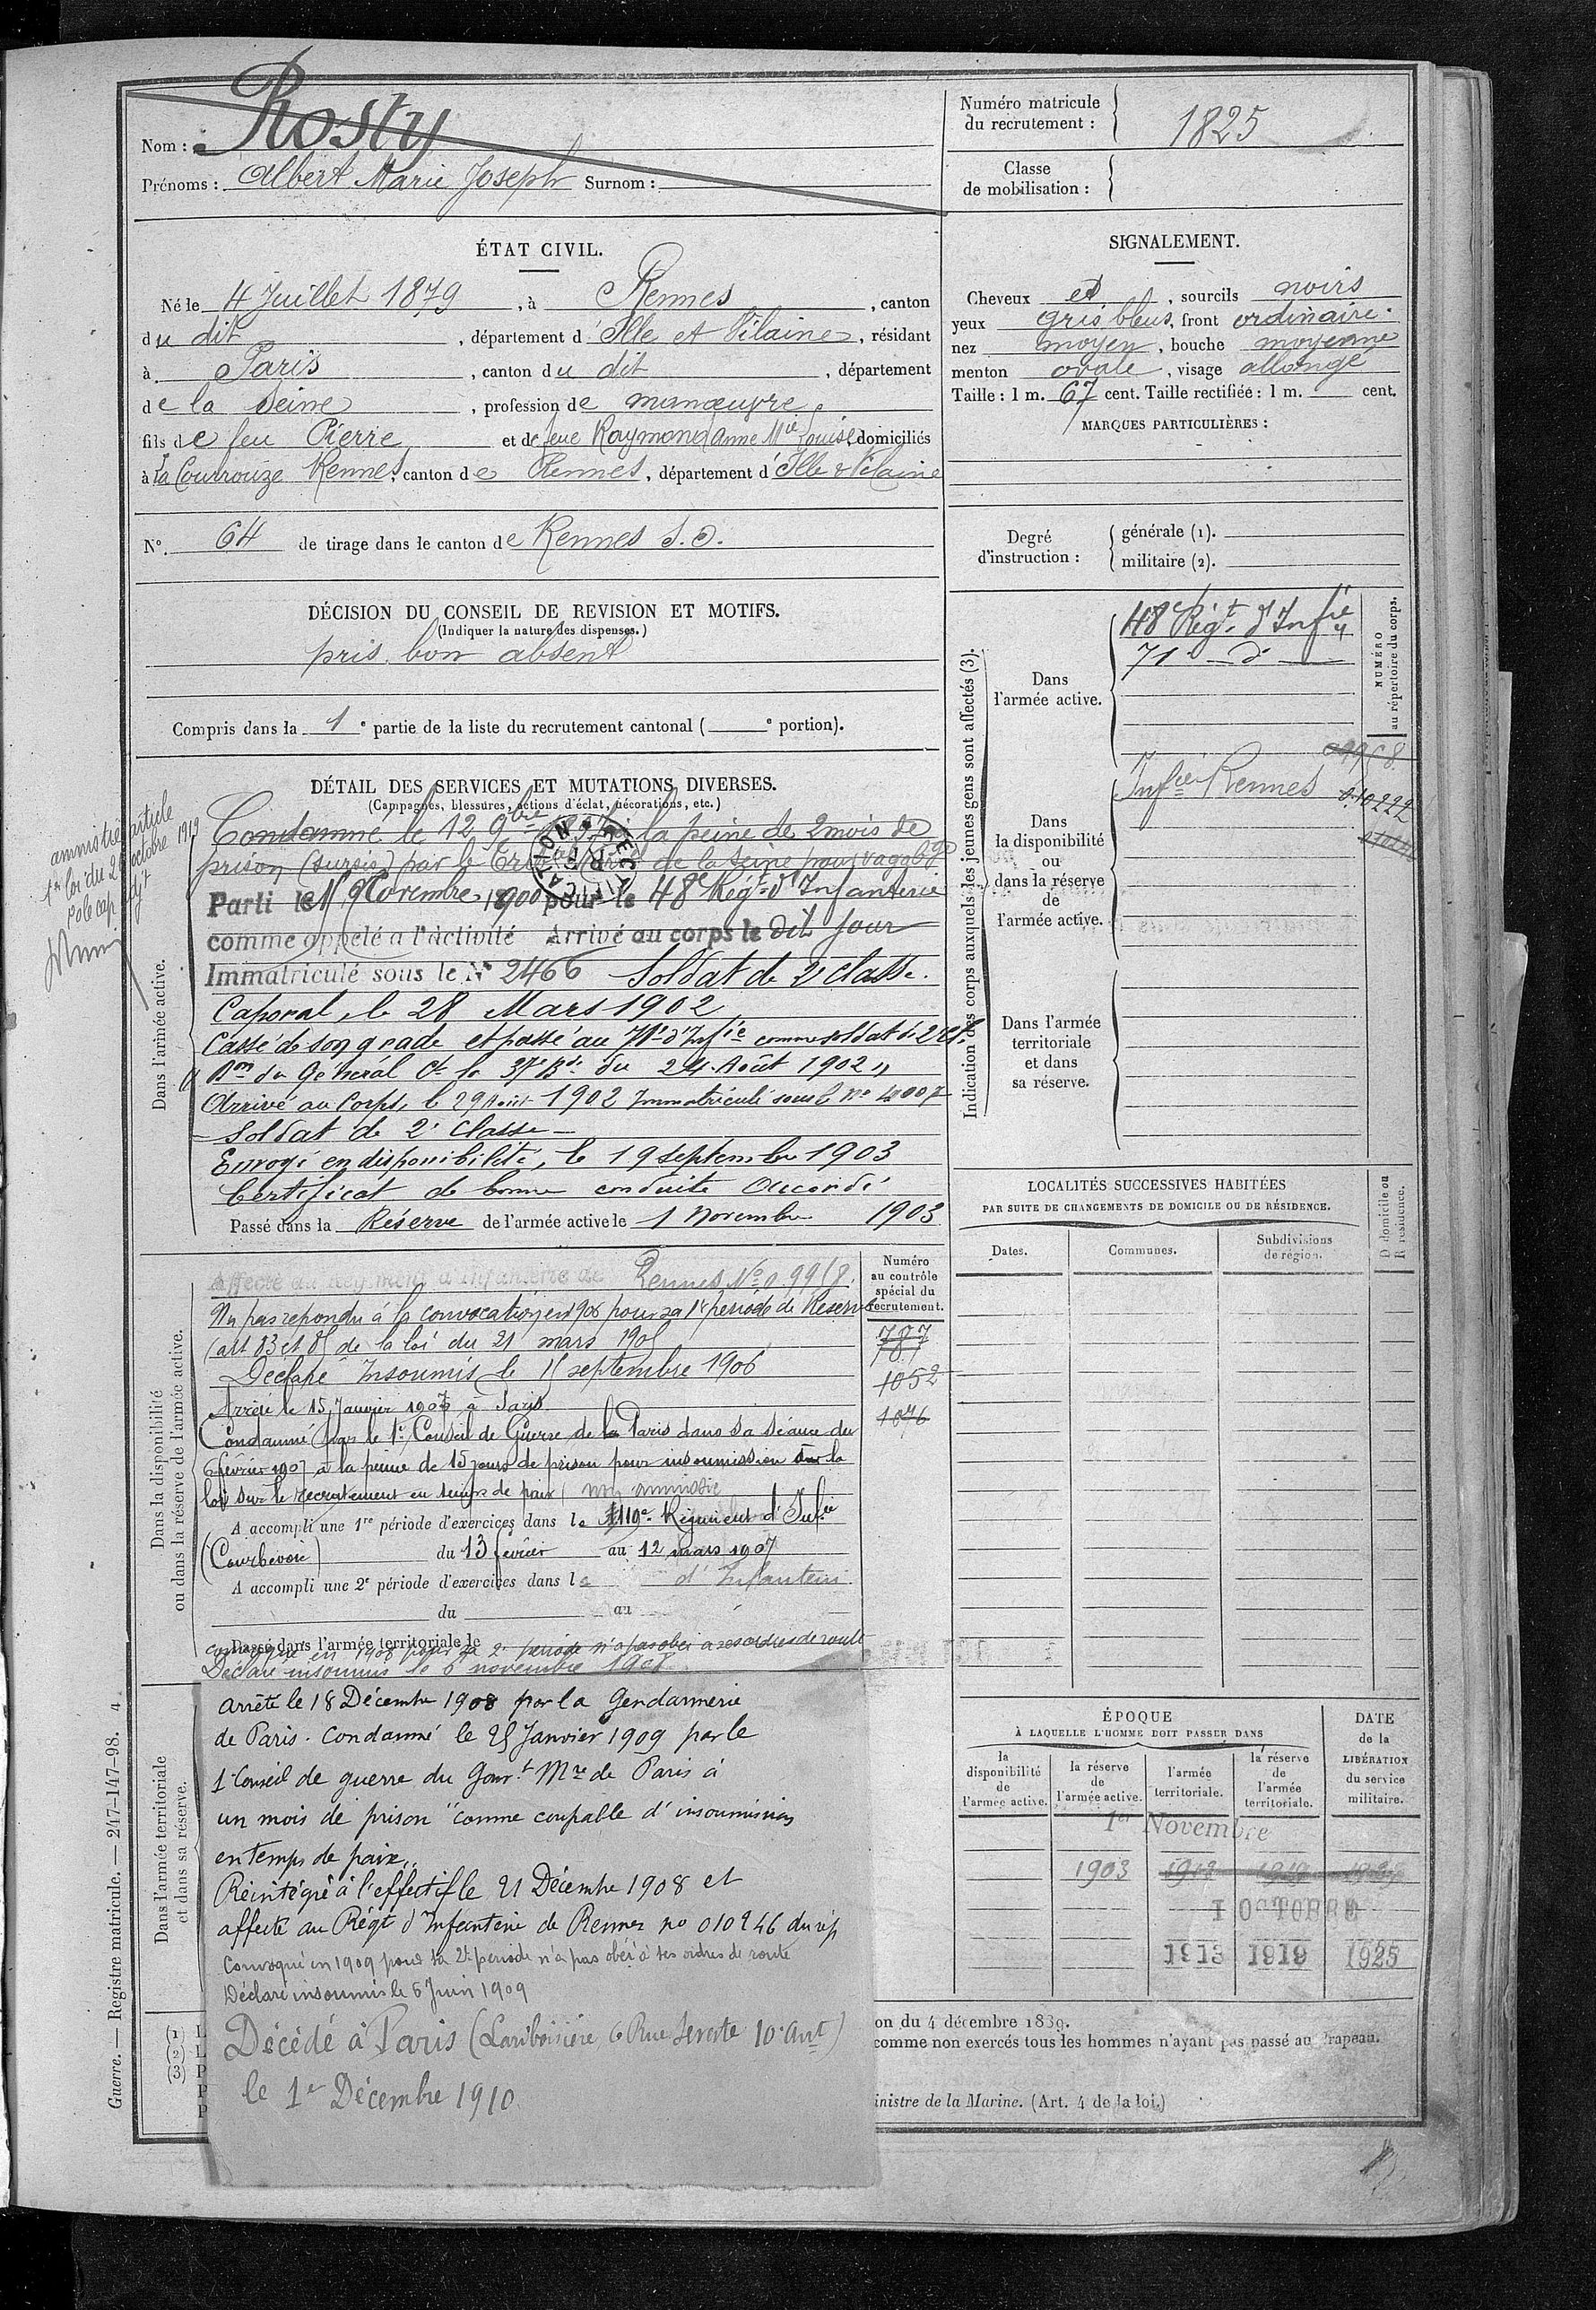 Nom : Rosty
Prénoms : Albert Marie Joseph Surnom :
Numéro matricule du recrutement : 1825
Classe de mobilisation :
ÉTAT CIVIL.
Né le 4 Juillet 1879, à Rennes, canton
du dit, département d'Ille et Vilaine, résidant
à Paris, canton du dit, département
de la Seine, profession de manœuvre
fils de feu Pierre et de feue Raymond Anne Mie Louise, domiciliés
à la Courrouze Rennes, canton de Rennes, département d'Ille & Vilaine
N°. 64 de tirage dans le canton de Rennes S.O.
SIGNALEMENT.
Cheveux et, sourcils noirs
yeux gris bleus, front ordinaire.
nez moyen, bouche moyenne
menton ovale, visage allongé
Taille : 1 m. 67 cent. Taille rectifiée : 1 m. cent.
MARQUES PARTICULIÈRES :
Degré d'instruction :
générale (1).
militaire (2).
DÉCISION DU CONSEIL DE REVISION ET MOTIFS.
(Indiquer la nature des dispenses.)
pris bon absent
Compris dans la 1e partie de la liste du recrutement cantonal ( e portion).
DÉTAIL DES SERVICES ET MUTATIONS DIVERSES.
(Campagnes, blessures, actions d'éclat, décorations, etc.)
amnistie article
1er loi du 24 octobre 1919
Dans l'armée active.
Condamné le 12 9bre la peine de 2 mois de
prison (sursis) par le de la Seine pour vagabge
Parti le 15 Novembre 1900 pour le 48e Régt d'Infanterie
comme appelé a l'activité Arrivé au corps le dit Jour
Immatriculé sous le N° 2466 Soldat de 2e classe.
Caporal, le 28 Mars 1902
Cassé de son grade et passé au 71e d'Infie comme soldat de 2e cl.
Don du Général Ct la 37e Bde du 24 Août 1902 "
Arrivé au Corps, le 29 Août 1902 Immatriculé sous le No 4007
Soldat de 2e Classe
Envoyé en disponibilité, le 19 septembre 1903
Certificat de bonne conduite Accordé
Passé dans la Réserve de l'armée active le 1 Novembre 1903
Indication des corps auxquels les jeunes gens sont affectés (3).
NUMÉRO au répertoire du corps.
Dans l'armée active.
48e Régt d'Infie
71e d°
Dans la disponibilité ou dans la réserve de l'armée active.
Infie Rennes
09958
010222
Dans l'armée territoriale et dans sa réserve.
Dans la disponibilité ou dans la réserve de l'armée active.
Numéro au contrôle spécial du recrutement.
787
1052
1046
Affecté au Régiment d'Infanterie de Rennes No 0.9958.
N'a pas répondu à la convocation en 1906 pour sa 1re période de Réserve
(art 83 et 85 de la loi du 21 mars 1905
Déclaré Insoumis le 15 septembre 1906
Arrêté le 15 Janvier 1907 à Paris.
Condamné par le 1er Conseil de Guerre de Paris dans sa séance du
6 février 1907 à la peine de 15 jours de prison pour insoumission à la
loi sur le recrutement en temps de paix ( non amnistié
A accompli une 1re période d'exercices dans le 119e Régiment d'Infie
(Courbevoie) du 13 février au 12 mars 1907
A accompli une 2e période d'exercices dans le d'Infanterie
du au
Passé dans l'armée territoriale le
convoqué en 1908 pour sa 2e période n'a pas obéi à ses ordres de route
Déclaré insoumis le 6 novembre 1908
Dans l'armée territoriale et dans sa réserve.
Arrêté le 18 Décembre 1908 par la Gendarmerie
de Paris. Condamné le 25 Janvier 1909 par le
1er Conseil de guerre du Gouvt Mre de Paris à
un mois de prison "comme coupable d'insoumission
en temps de paix"
Réintégré à l'effectif le 21 Décembre 1908 et
affecté au Régt d'Infanterie de Rennes no 010246 du rép
Convoqué en 1909 pour sa 2e période n'a pas obéi à ses ordres de route
Déclaré insoumis le 6 Juin 1909
Décédé à Paris (Lariboisière, 6 Rue 10e Arrt)
le 1er Décembre 1910.
LOCALITÉS SUCCESSIVES HABITÉES
PAR SUITE DE CHANGEMENTS DE DOMICILE OU DE RÉSIDENCE.
Dates. Communes. Subdivisions de région. D domicile ou R résidence.
ÉPOQUE
À LAQUELLE L'HOMME DOIT PASSER DANS
la disponibilité de l'armée active.
la réserve de l'armée active.
l'armée territoriale.
la réserve de l'armée territoriale.
DATE de la LIBÉRATION du service militaire.
1er Novembre
1903
1 OCTOBRE
1913 1919 1925
on du 4 décembre 1839.
comme non exercés tous les hommes n'ayant pas passé au drapeau.
inistre de la Marine. (Art. 4 de la loi.)
Guerre. — Registre matricule. — 247-147-98. 4